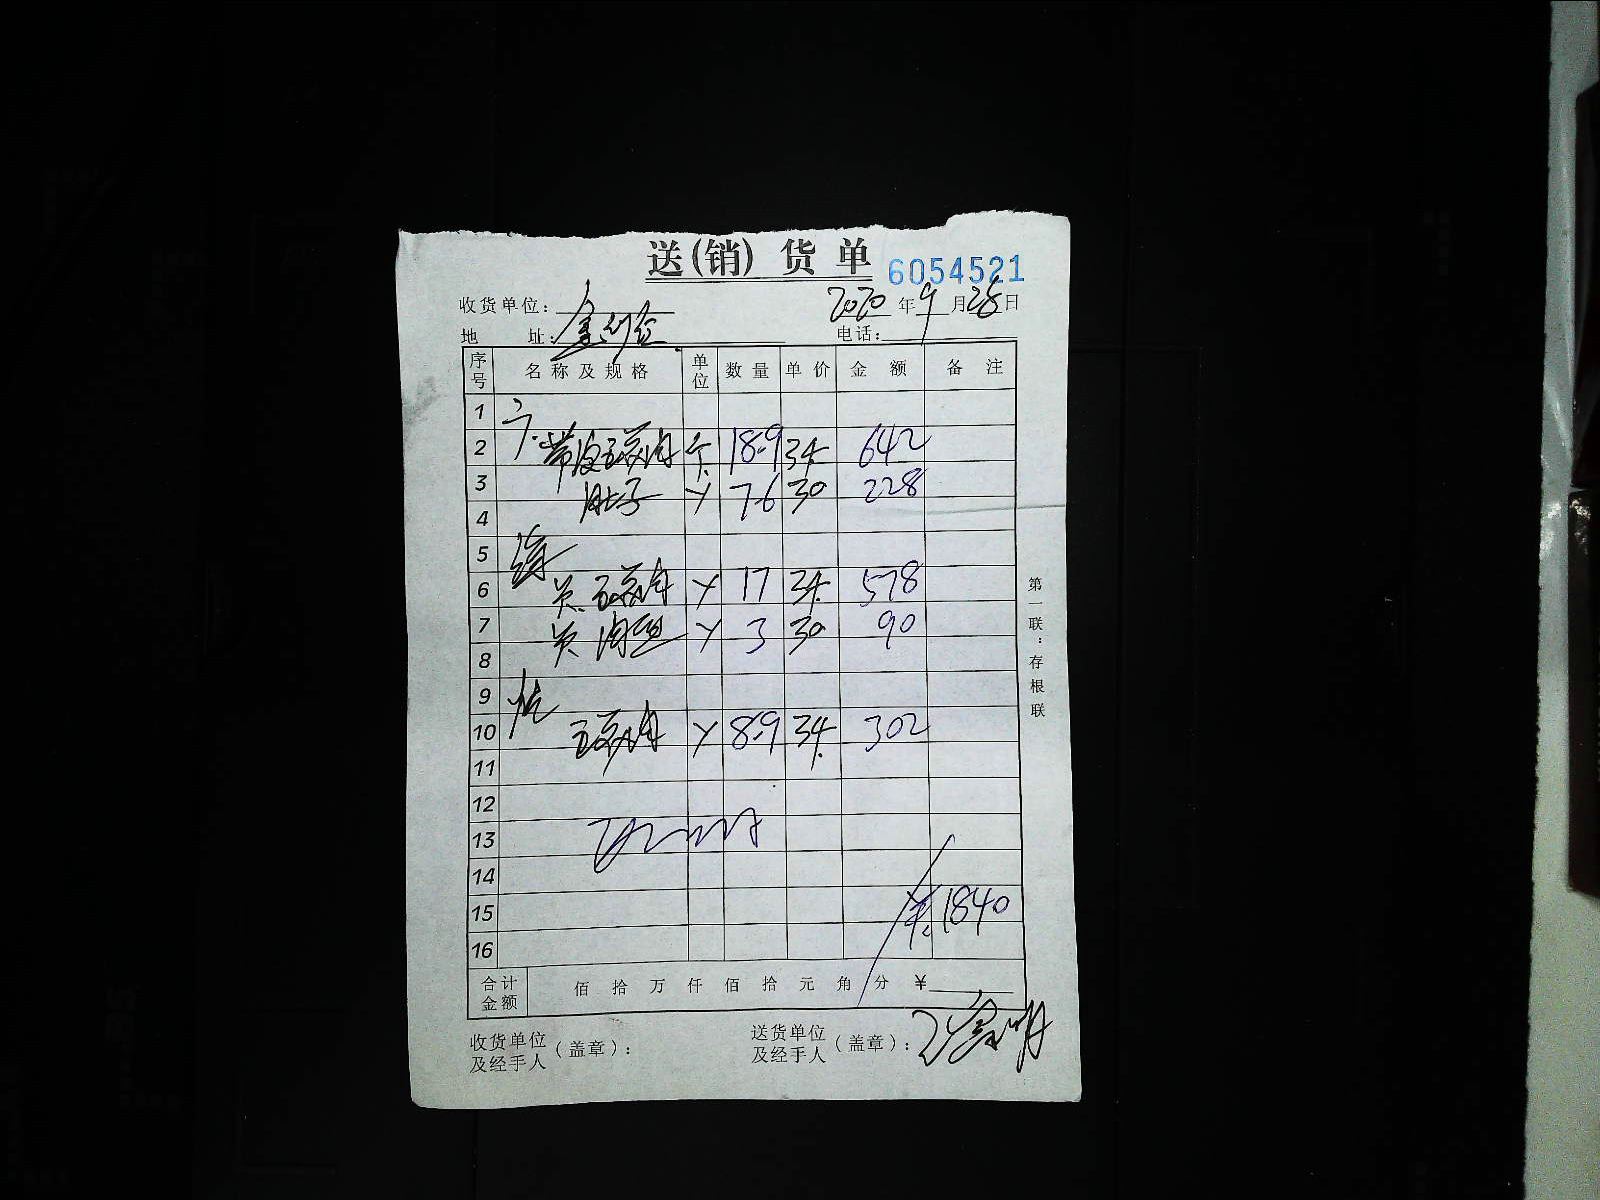 送(销)货单 6054521
收货单位： 2020年9月28日
地 址： 电话：
序号 名称及规格 单位 数量 单价 金额 备注
1
2 带皮五花肉 斤 18.9 34 642
3 肚子 〃 7.6 30 228
4
5
6 关 五花肉 〃 17 34 578
7 关 肉丝 〃 3 30 90
8
9
10 五花肉 〃 8.9 34 302
11
12
13
14
15 1840
16
合计金额 佰 拾 万 仟 佰 拾 元 角 分 ¥
收货单位及经手人(盖章)： 送货单位及经手人(盖章)：
第一联：存根联